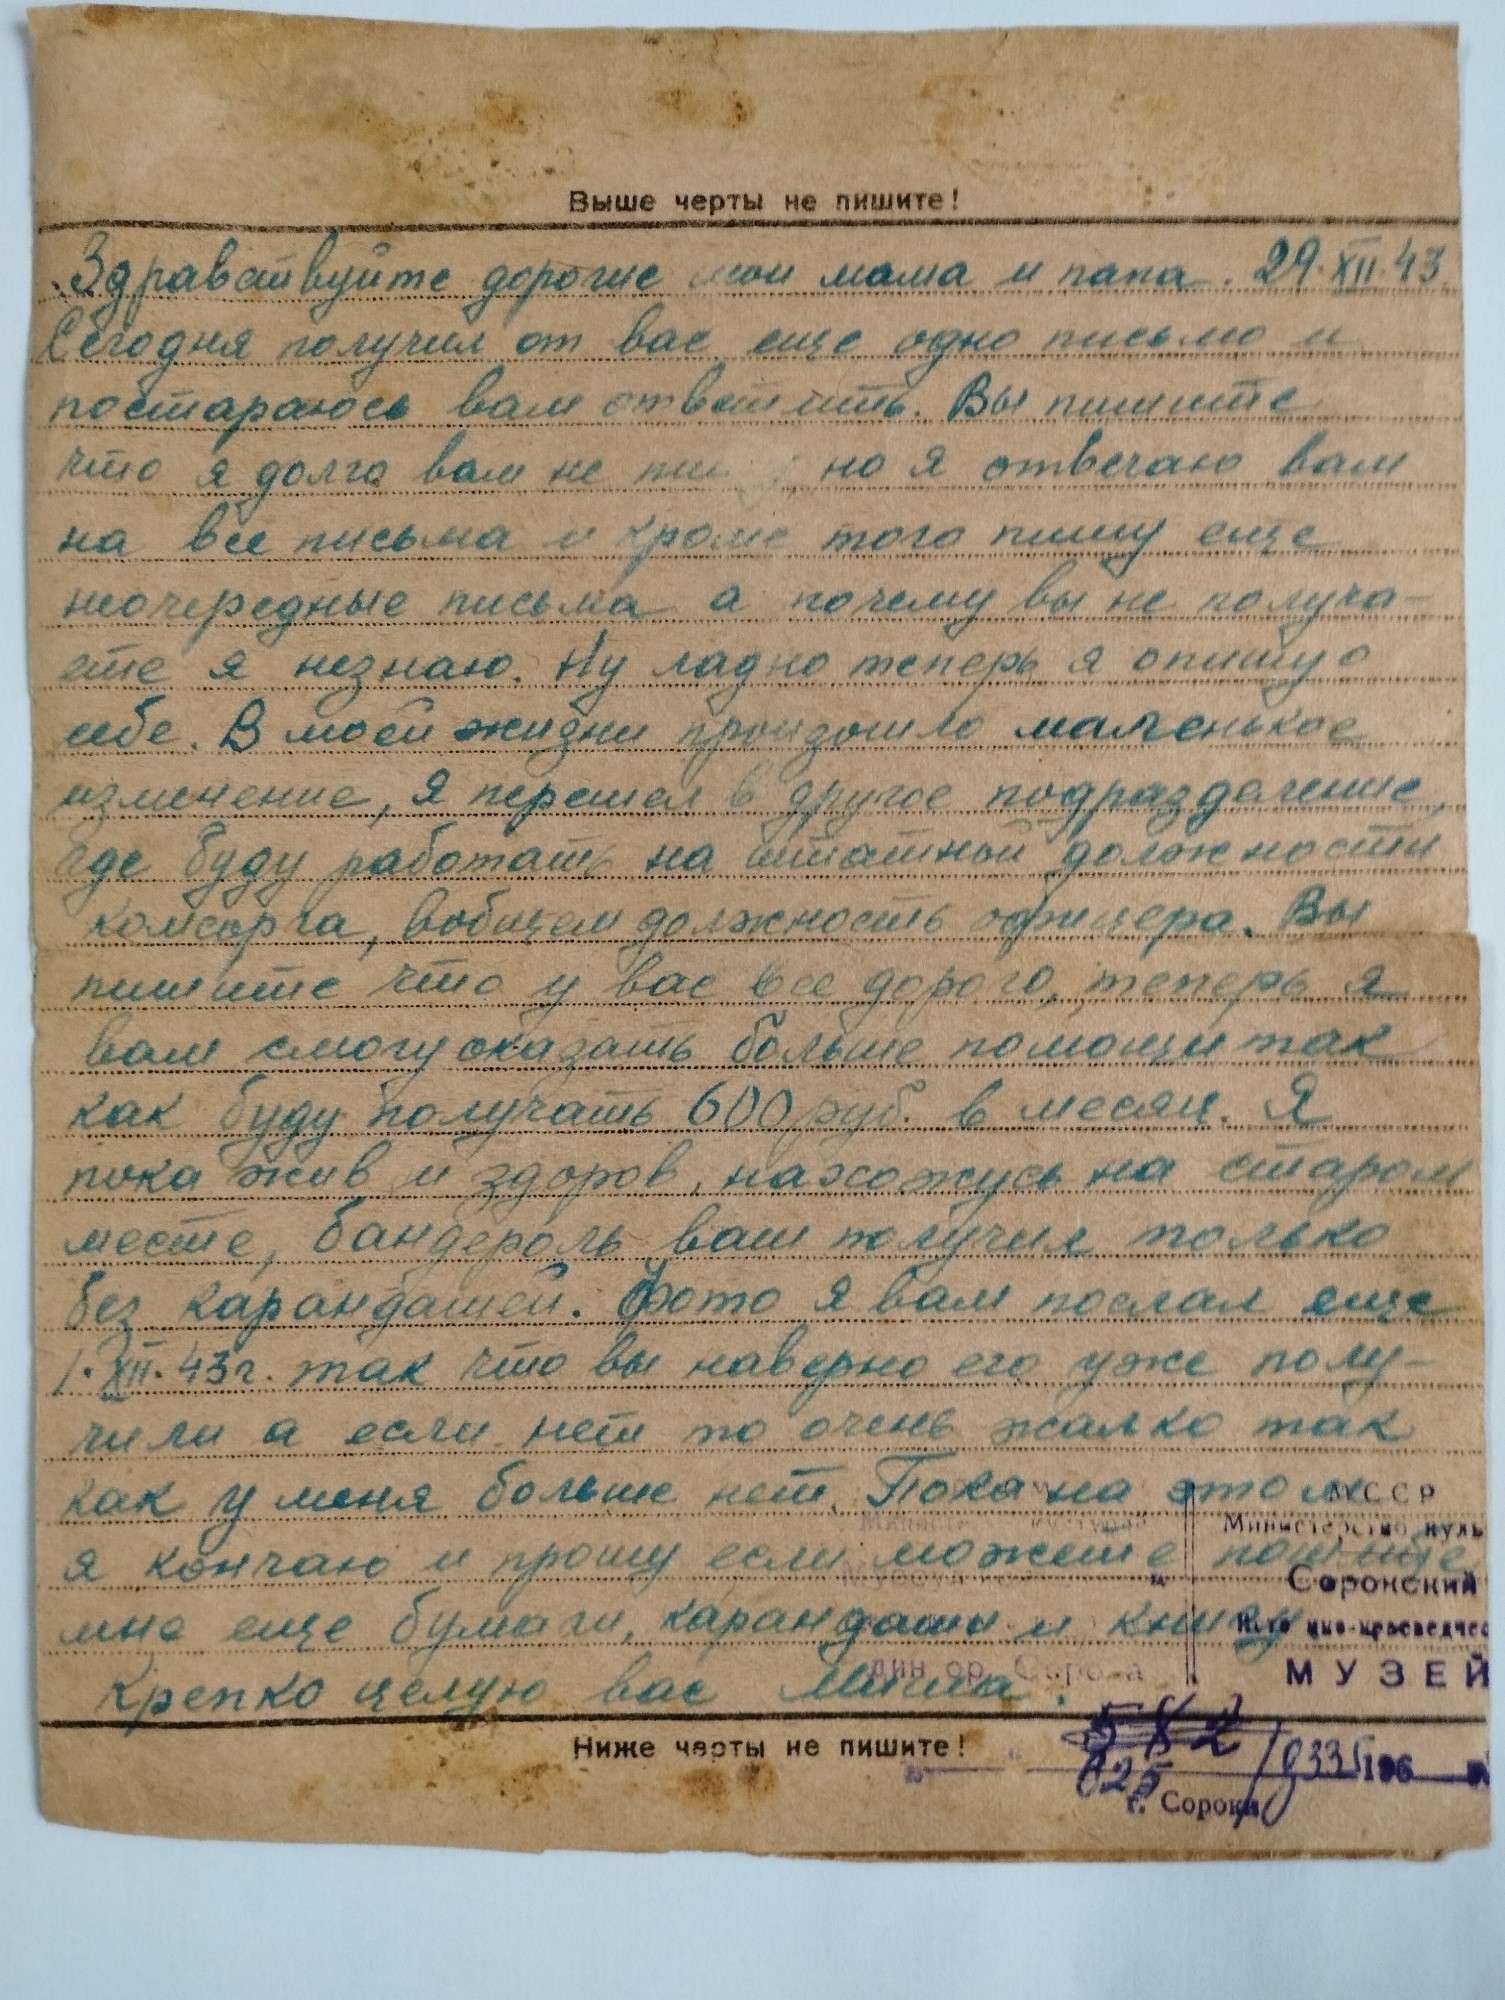 Выше черты не пишите!
Здравствуйте дорогие мои мама и папа. 29.XII.43.
Сегодня получил от вас еще одно письмо и
постараюсь вам ответить. Вы пишите
что я долго вам не но я отвечаю вам
на все письма и кроме того пишу еще
неочередные письма а почему вы не получа-
ете я незнаю. Ну ладно теперь я опишу о
себе. В моей жизни произошло маленькое
изменение, я перешел в другое подразделение,
где буду работать на штатной должности
комсорга, вобщем должность офицера. Вы
пишите что у вас все дорого, теперь я
вам смогу оказать больше помощи так
как буду получать 600 руб. в месяц. Я
пока жив и здоров, нахожусь на старом
месте, бандероль ваш получил только
без карандашей. Фото я вам послал еще
1.XII.43г. так что вы наверно его уже полу-
чили а если нет то очень жалко так
как у меня больше нет. Пока на этом
я кончаю и прошу если можете пошлите
мне еще бумаги, карандаши и книгу
Крепко целую вас Миша.
МССР
Министерство куль
Сорокский
МУЗЕЙ
Ниже черты не пишите!
582
825
196
г. Сороки